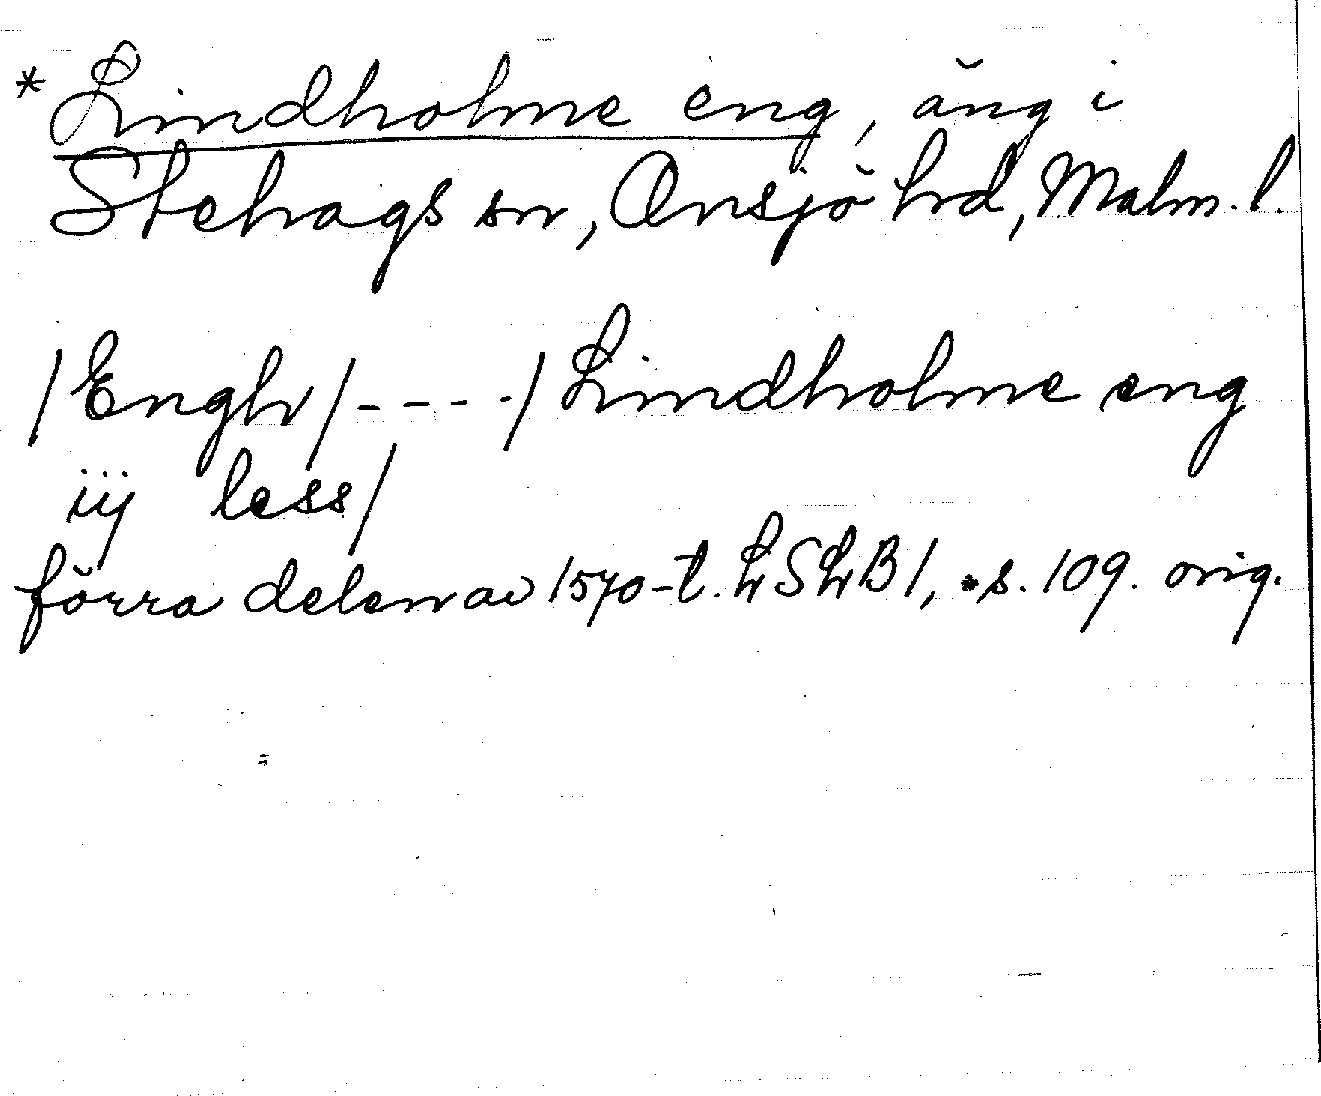 * Lindholme eng, äng i
Stehags sn, Onsjö hd, Malm. l.
/Engh/----/Lindholme eng
iij less/
förra delen av 1570-t. LSLB1, s. 109. orig.